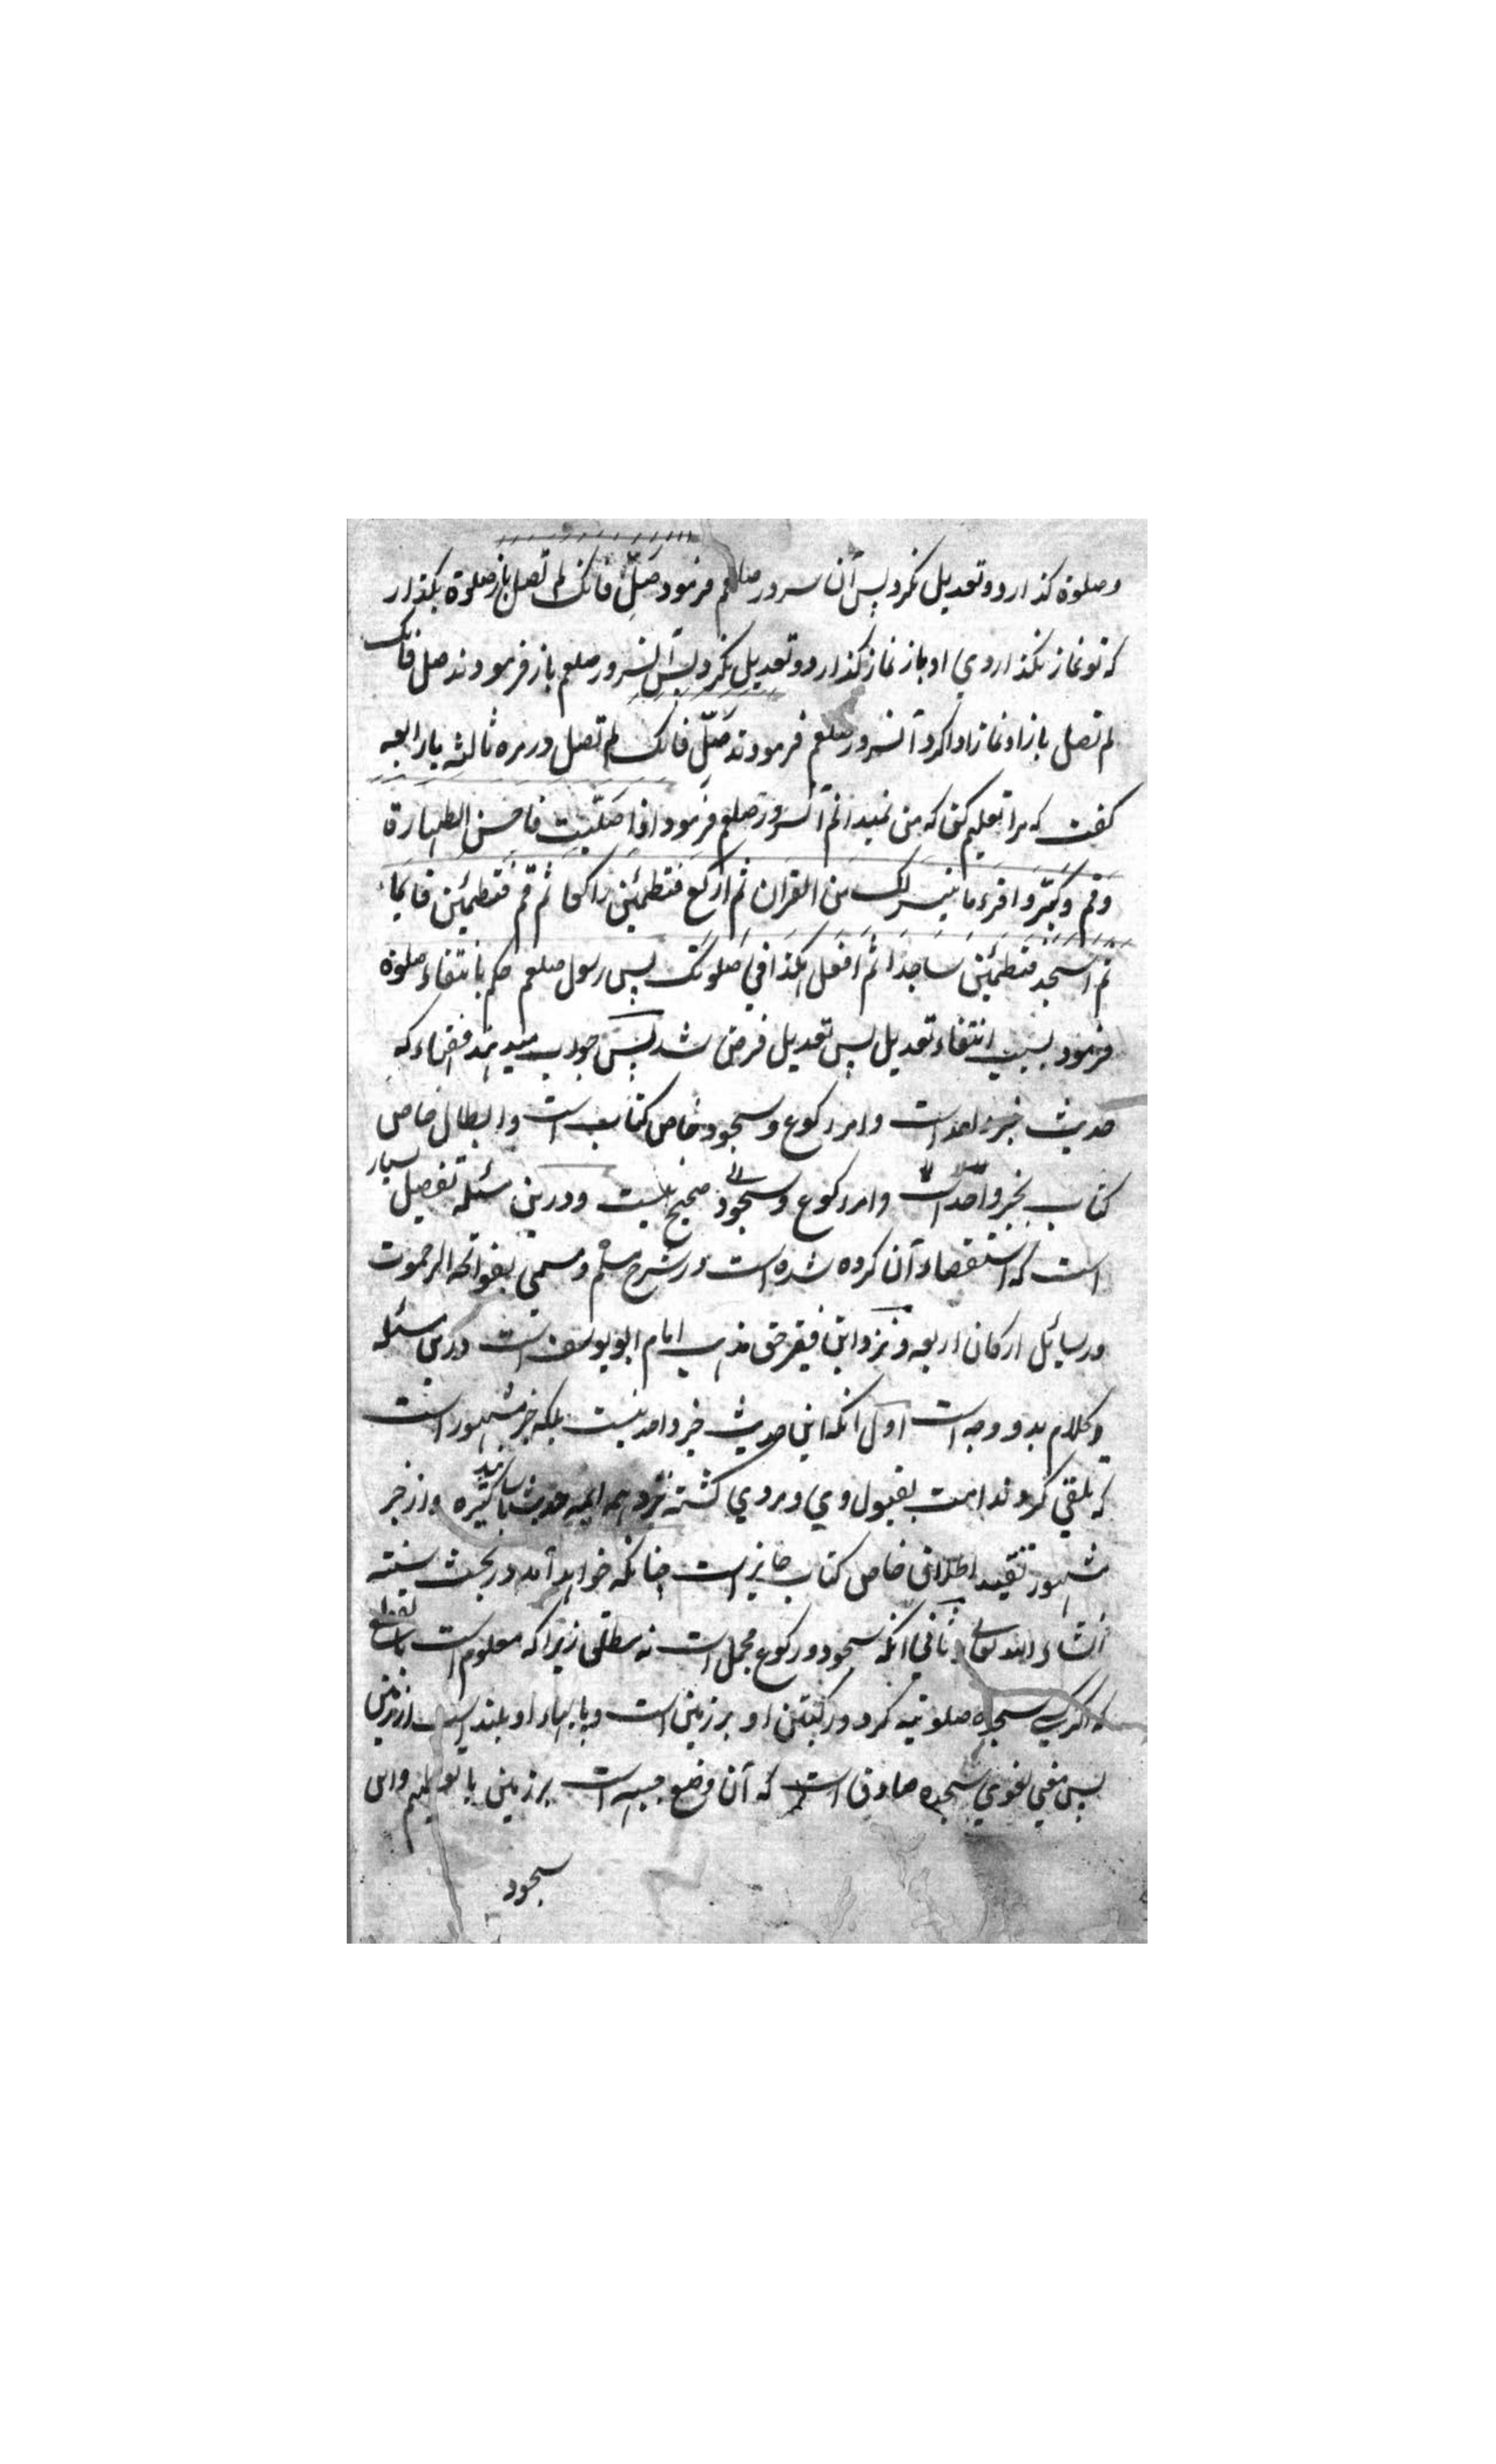 وصلوة كذارد وتعديل نكرد پس آن سرور صلعم فرمود صَلِّ فانك لم تصل باز صلوة بكذار
كه تو نماز نكذاردي او باز نماز كذارد وتعديل نكرد پس آنسرور صلعم باز فرمودند صل فانك
لم تصل باز او نماز ادا كرد آنسرور صلعم فرمودند صَلِّ فانك لم تصل در مره ثالثه يا رابعه
كفت كه مرا تعليم كن كه من نميدانم آنسرور صلعم فرمود اذا صَلَّيت فاحسن الطهارة
وقم وكبّر واقرء ما تيسر لك من القران ثم اركع فتطمئن راكعا ثم قم فتطمئن قايما
ثم اسجد فتطمئن ساجدا ثم افعل هكذا في صلوتك پس رسول صلعم حكم بانتفاء صلوة
فرمود بسبب انتفاء تعديل پس تعديل فرض شد پس جواب ميدهند فقهاء كه
حديث خبر واحد است وامر ركوع وسجود خاص كتاب است وابطال خاص
كتاب بخبر واحد است وامر ركوع وسجود صحيح نيست ودرين مسئله تفصيل بسيار
است كه استقصاء آن كرده شده است در شرح مسلم ومسمي بفواتح الرحموت
ورسايل اركان اربعه ونزد اين فقير حق مذهب امام ابو يوسف است درين مسئله
وكلام بدو وجه است اول آنكه اين حديث خبر واحد نيست بلكه خبر مشهور است
كه تلقي كردند امت بقبول وي ومروي كشته نزد همه ايمه حديث باسانيد كثيره واز خبر
مشهور تقييد اطلاق خاص كتاب جايز است چنانكه خواهد آمد در بحث سنته
انشاء الله تعالى ثاني انكه سجود وركوع مجمل است نه مطلق زيرا كه معلوم است
كه اكر سجده صلوتيه كرد وركبتين او بر زمين است وپايهاء او بلند است از زمين
پس معني لغوي سجده صادق است كه آن وضع جبهه است بر زمين واين
سجود